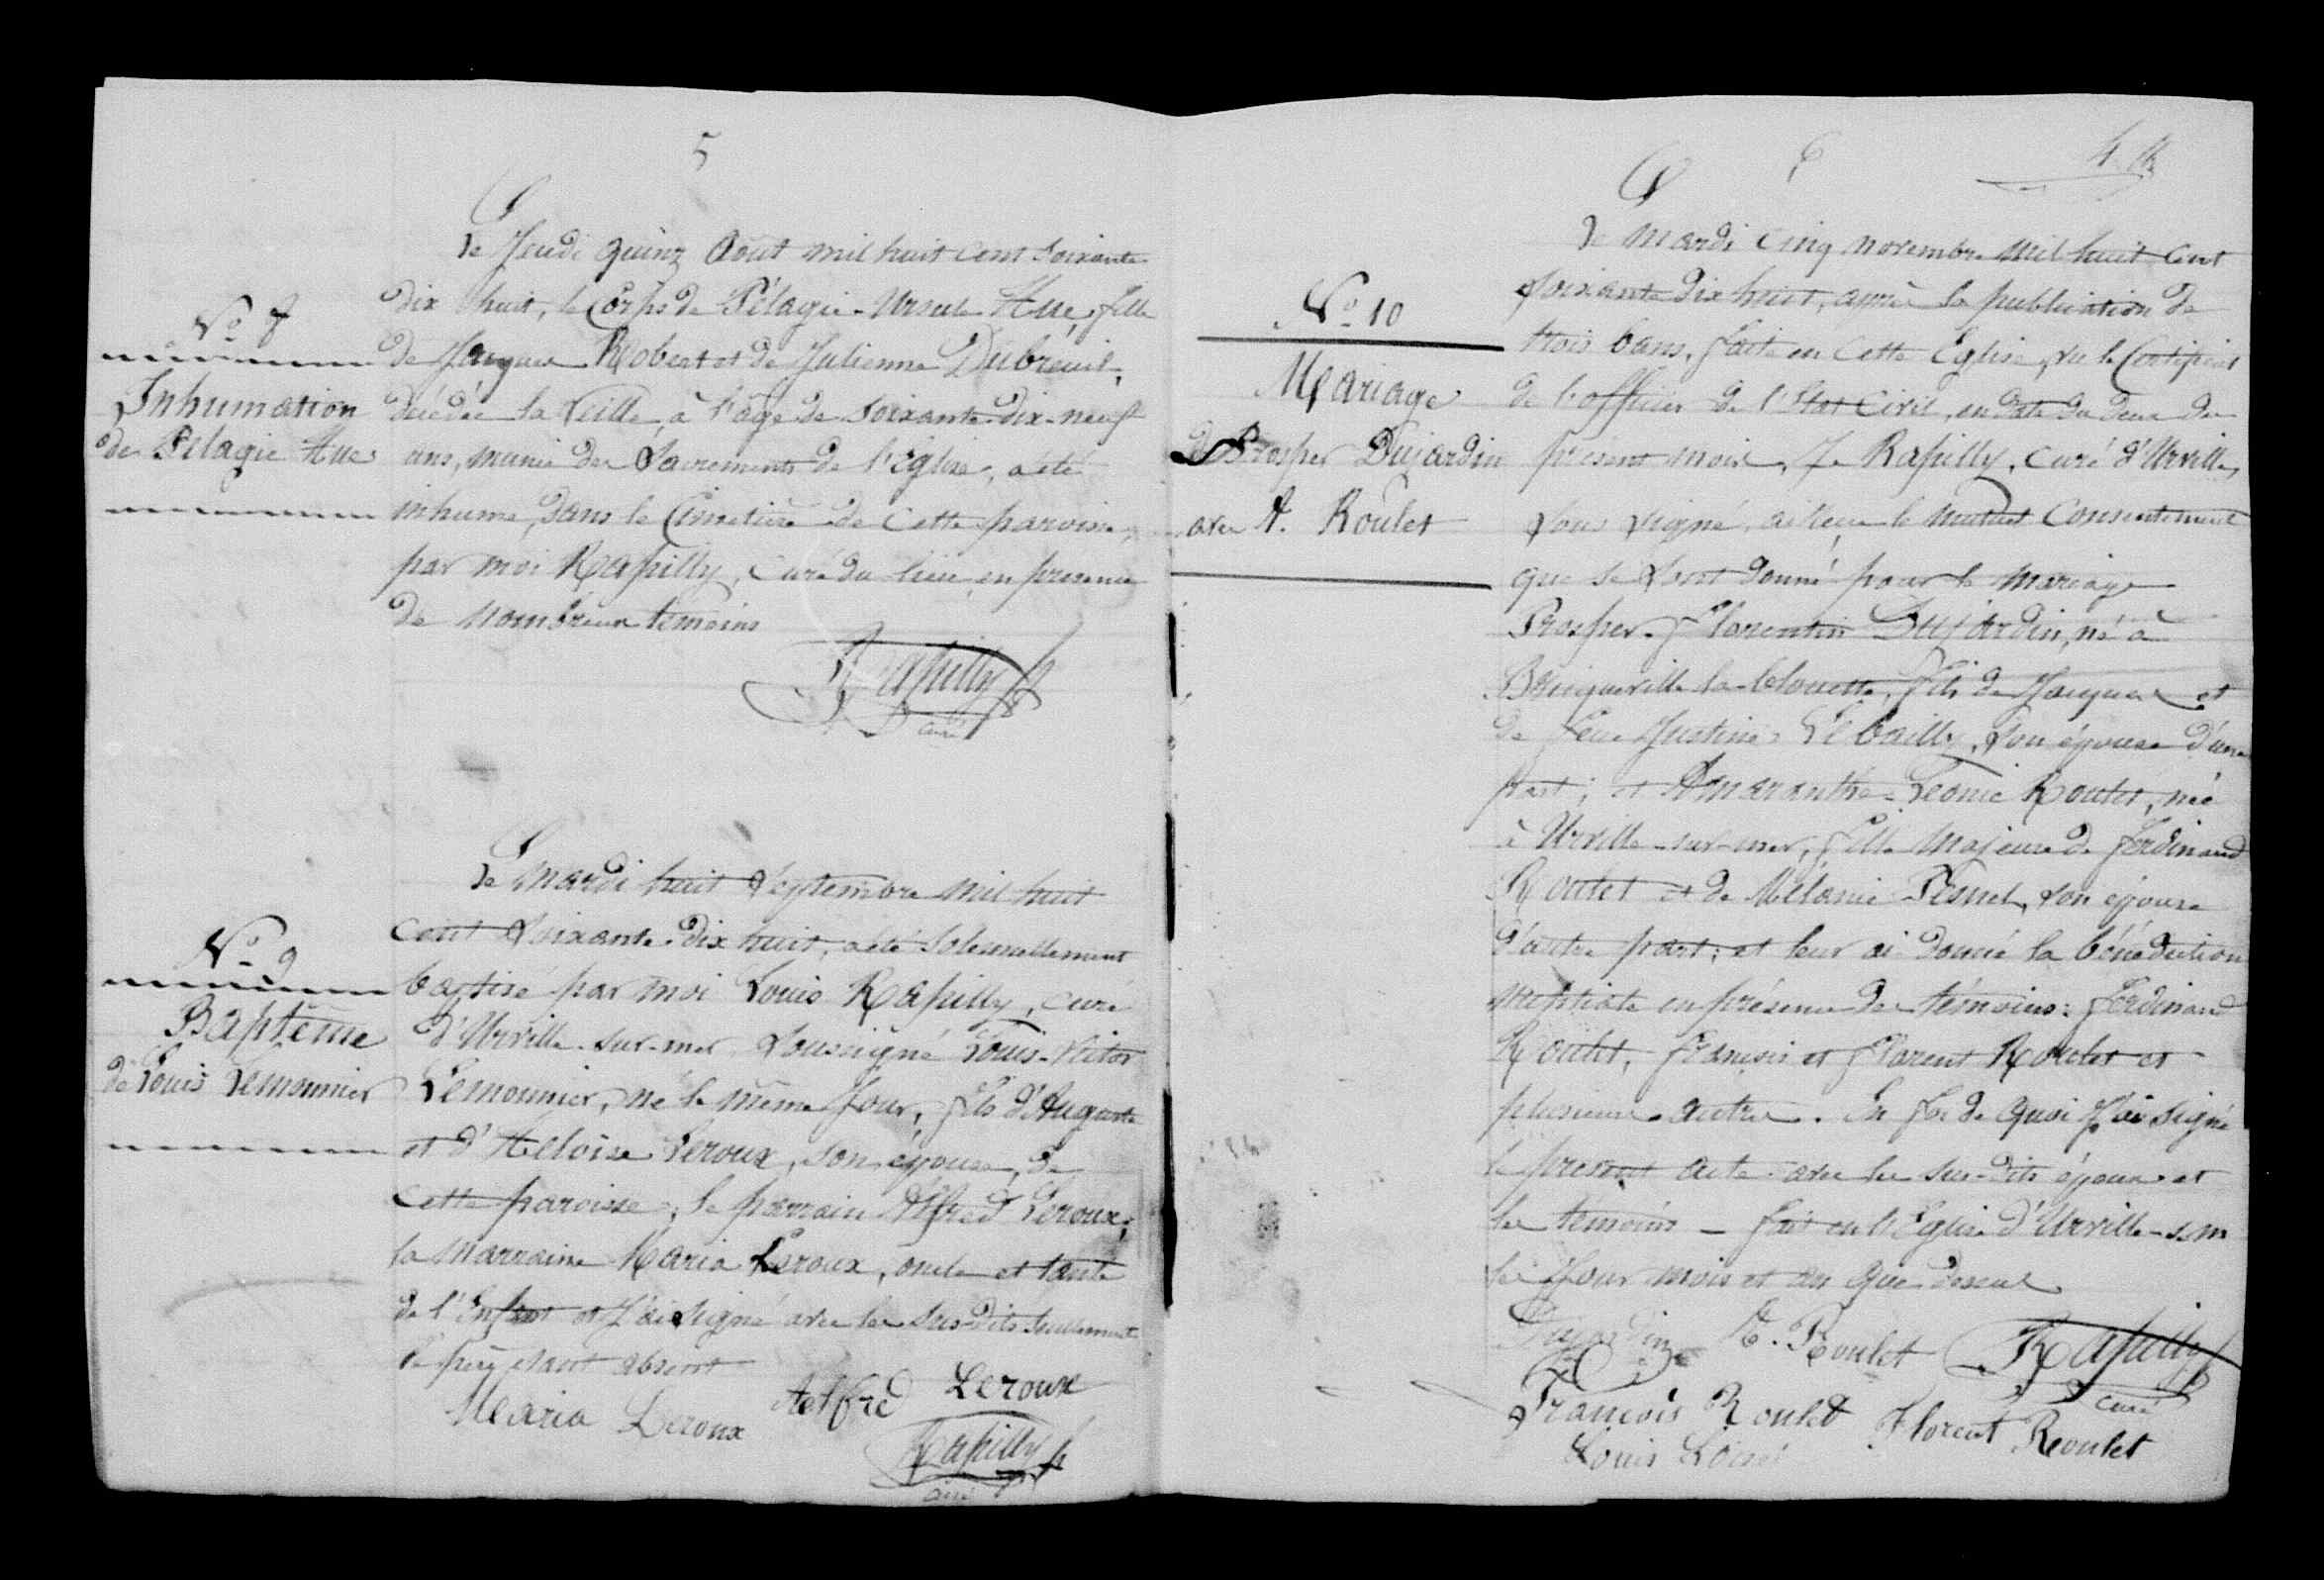 5
N° 8
Inhumation
de Pélagie Hue
Le Jeudi quinz Août mil huit cent soixante
dix huit, le Corps de Pélagie-Ursule Hue, fille
de Jacques Robert et de Julienne Dubreuil,
décédée la veille, à l'âge de soixante-dix-neuf
ans, munie des Sacrements de l'Eglise, a été
inhumé, dans le Cimetière de cette paroisse,
par moi Rapilly, curé du lieu, en présence
de nombreux témoins
Rapilly
curé
N° 9
Baptême
de Louis Lemonnier
Le mardi huit Septembre mil huit
cent soixante-dix huit, a été solennellement
baptisé par moi Louis Rapilly, curé
d'Urville-sur-mer soussigné Louis-Victor
Lemonnier, né le même jour, fils d'Auguste
et d'Héloïse Leroux, son épouse, de
cette paroisse; le parrain Alfred Leroux;
la marraine Maria Leroux, oncle et tante
de l'Enfant et j'ai signé avec les sus-dits seulement
le père étant absent
Maria Leroux Alfred Leroux
Rapilly
curé
6
N° 10
Mariage
de Prosper Dujardin
avec A. Roulet
Le mardi cinq novembre mil huit cent
soixante dix huit, après la publication de
trois bans, faite en cette Eglise, vu le Certificat
de l'officier de l'Etat Civil, en date du deux du
présent mois, Je Rapilly, curé d'Urville,
sous signé, ai reçu le mutuel Consentement
que se sont donné pour le mariage
Prosper-Florentin Dujardin, né à
Bricqueville-la-blouette, fils de Jacques et
de feue Justine Lebailly, son épouse d'une
part; et Amaranthe-Léonie Roulet, née
à Urville-sur-mer, fille majeure de Ferdinand
Roulet et de Mélanie Pesnel, son épouse
d'autre part; et leur ai donné la bénédiction
nuptiale en présence des témoins: Ferdinand
Roulet, François et Florent Roulet et
plusieurs autres. En foi de quoi j'ai signé
le présent acte avec les sus-dits époux et
les témoins - Fait en l'Eglise d'Urville-s.m
les jour mois et an que dessus
Dujardin A. Roulet Rapilly
curé
François Roulet Florent Roulet
Louis